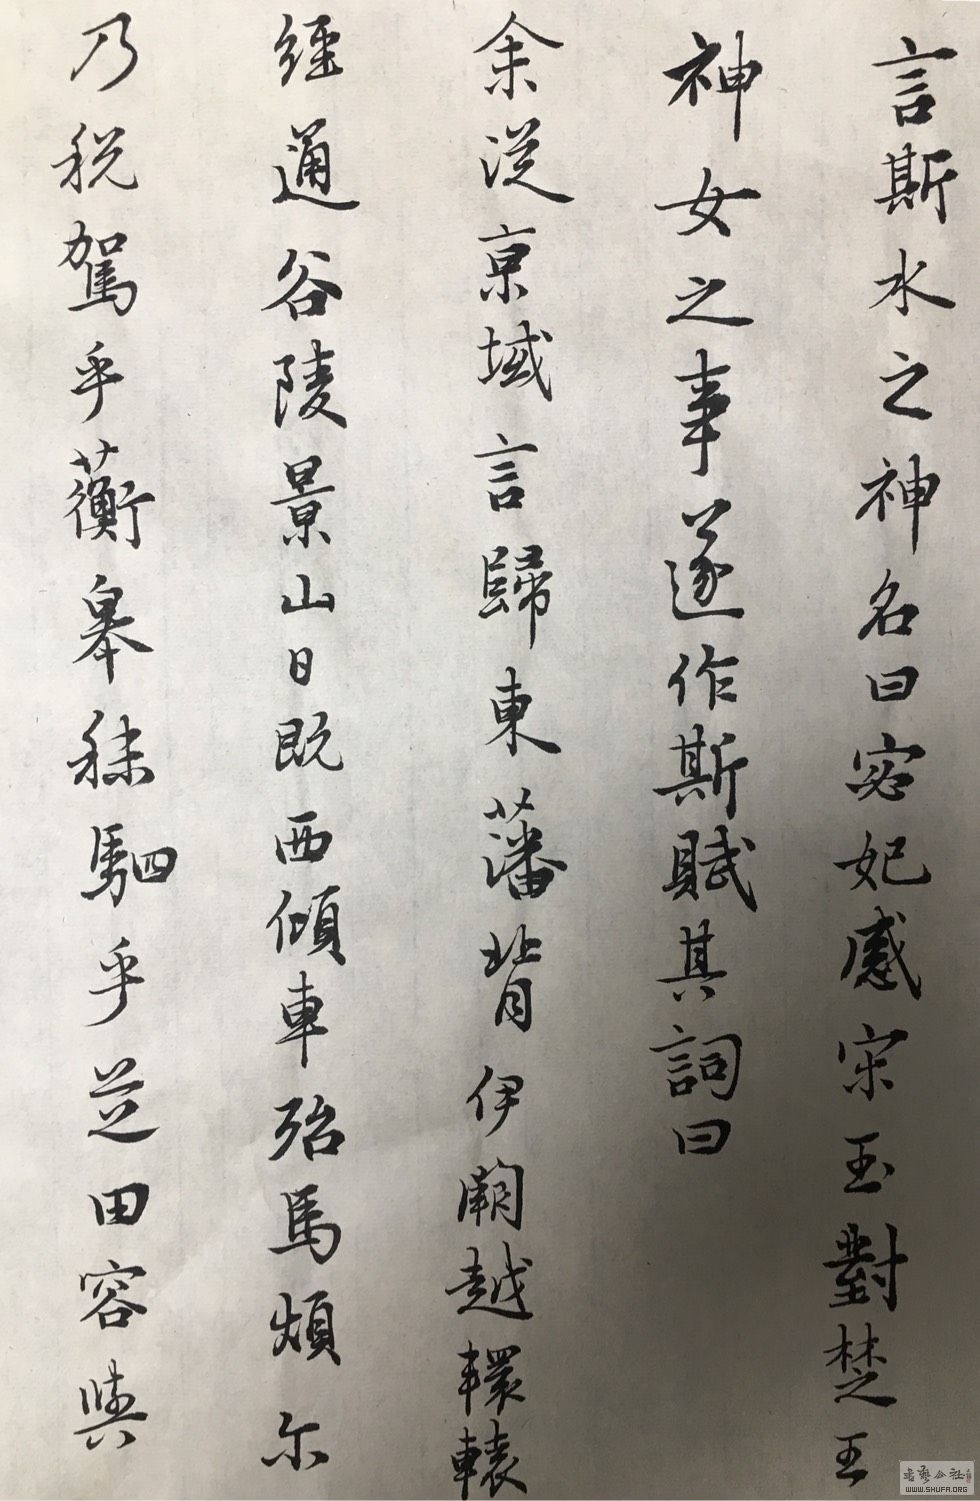 言斯水之神名曰宓妃感宋玉對楚王
神女之事遂作斯賦其詞曰
余從京域言歸東藩背伊闕越轘轅
經通谷陵景山日既西傾車殆馬煩尔
乃税駕乎蘅皋秣駟乎芝田容與
書藝公社
WWW.SHUFA.ORG